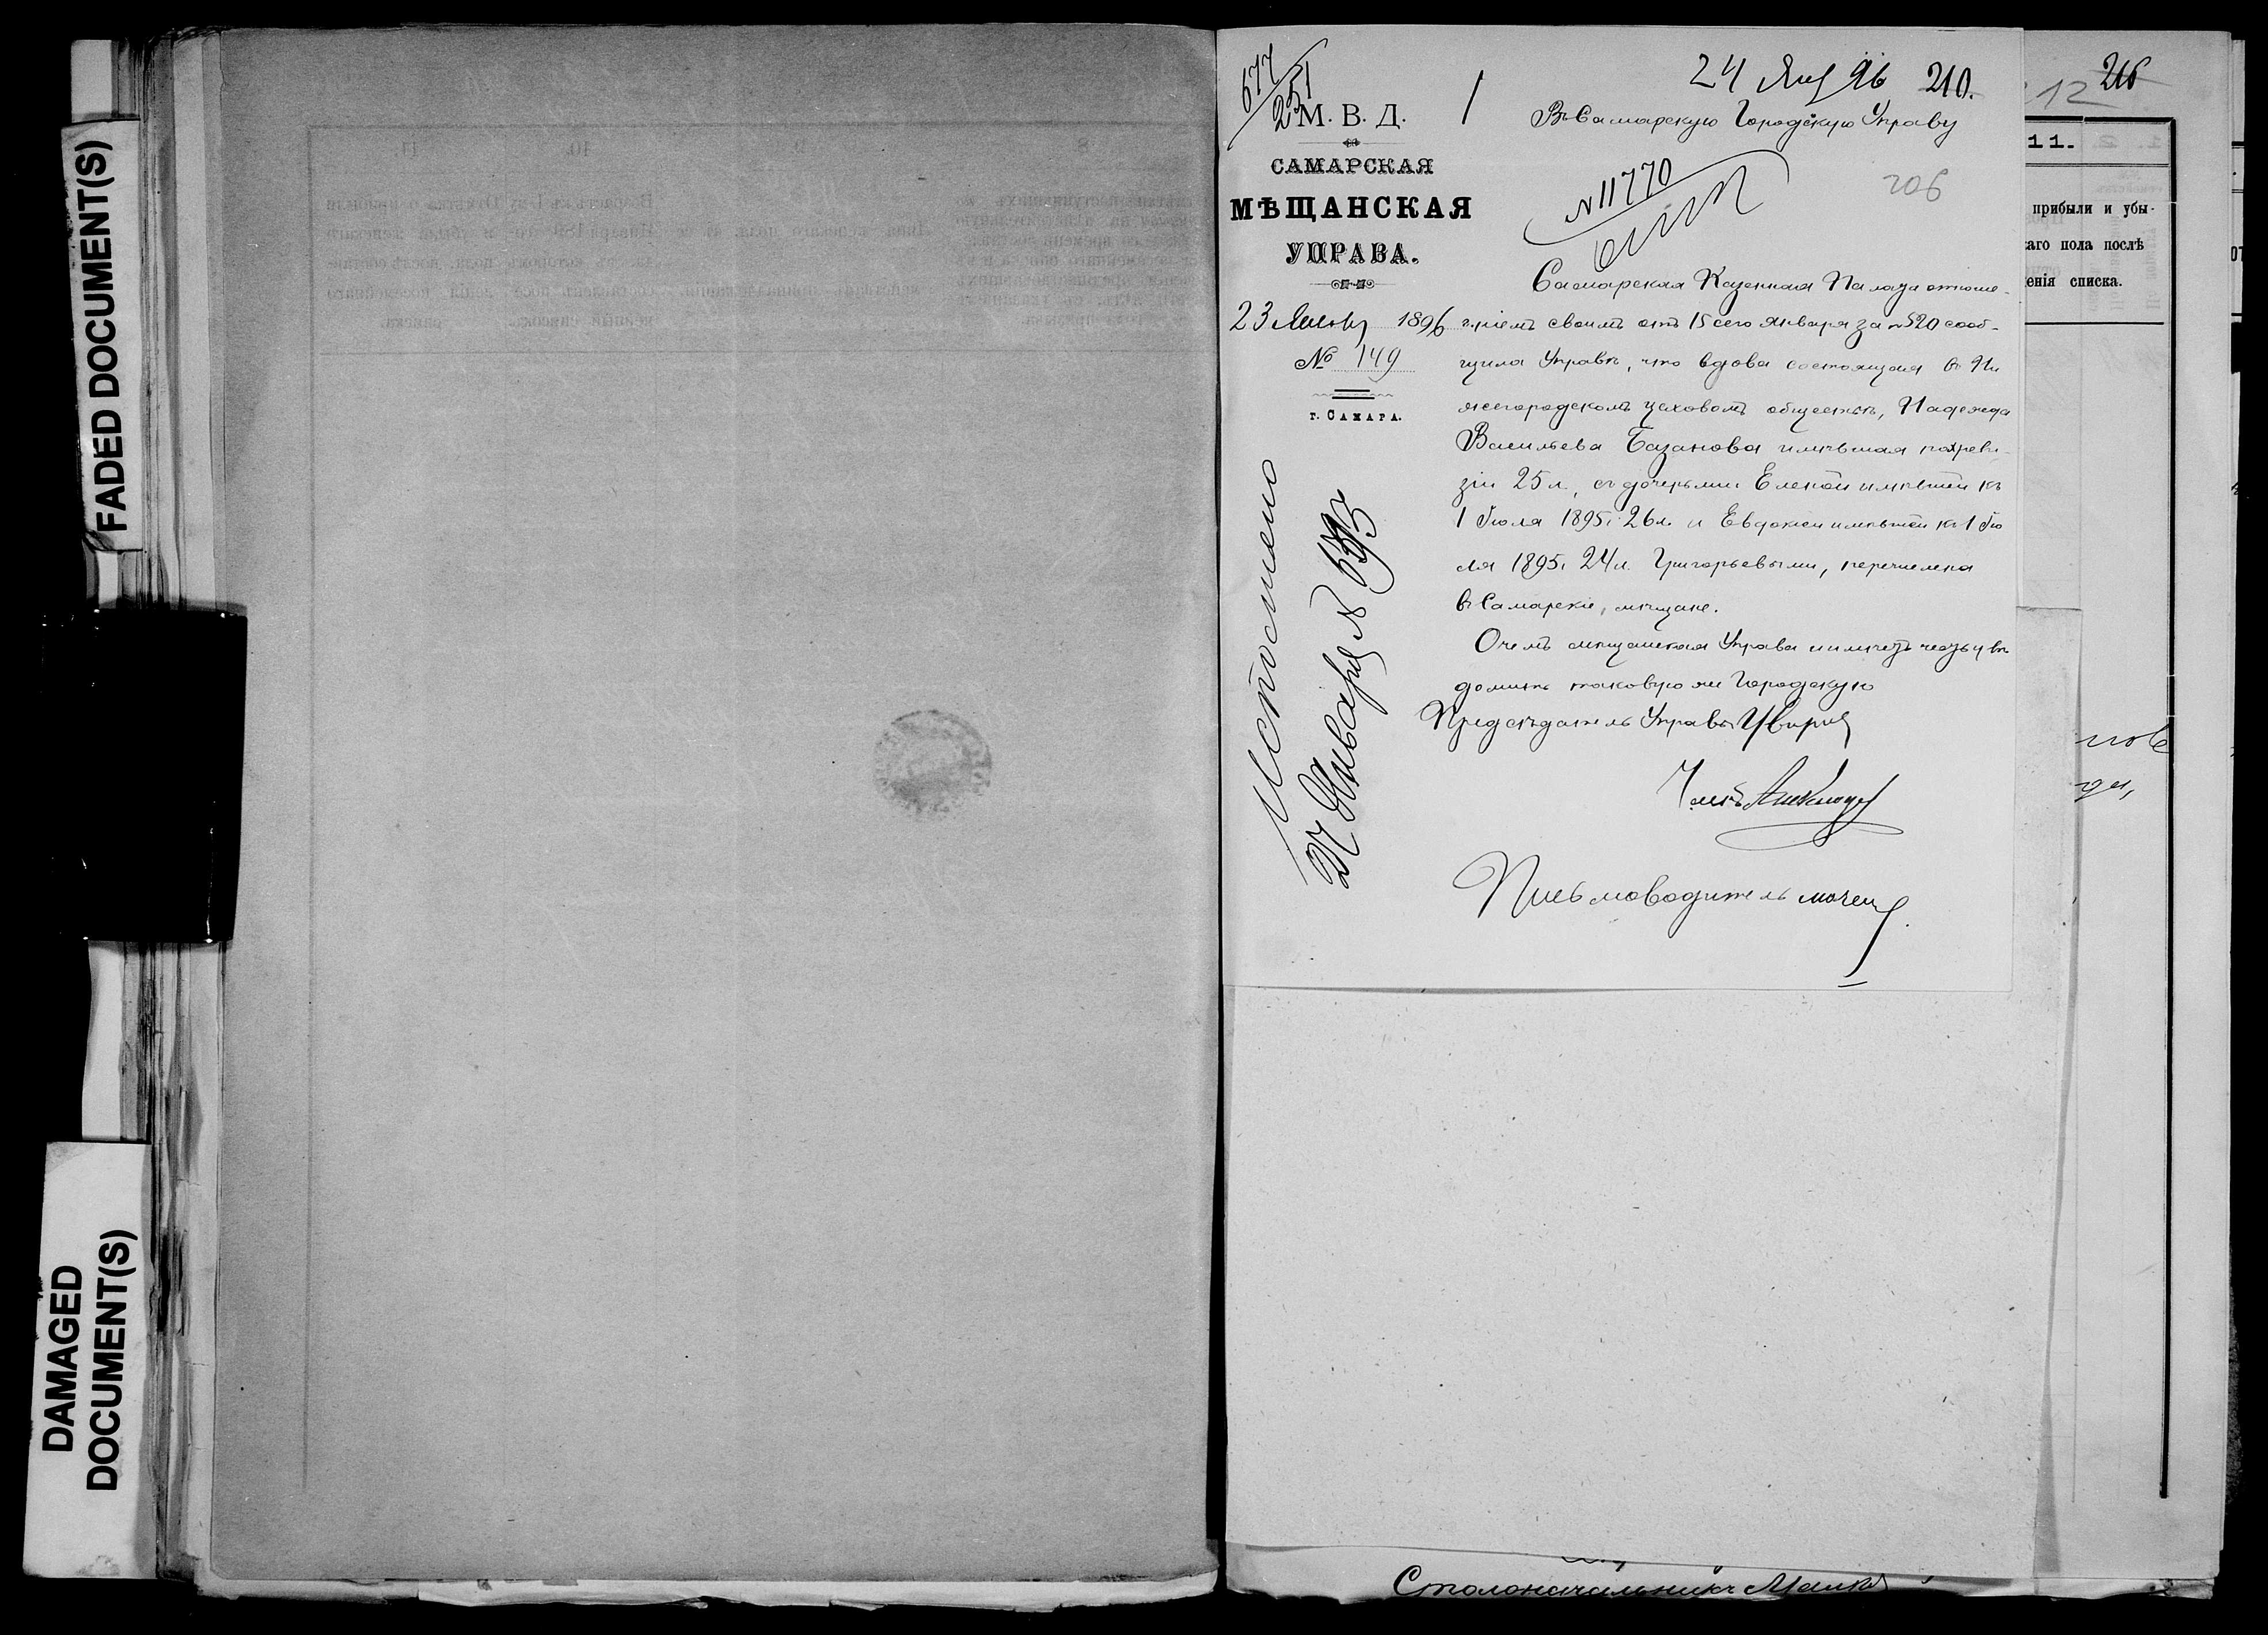 FADED DOCUMENT(S)
DAMAGED
DOCUMENT(S)
677
251
24 Янв 96 210.
М. В. Д.
САМАРСКАЯ
МѢЩАНСКАЯ
УПРАВА.
23 Января 1896
№ 149
г. САМАРА.
Въ Самарскую Городскую Управу
N 11770
206
Самарская Казенная Палата отноше-
ніемъ своимъ отъ 15 сего Января за № 520 сооб-
щила Управѣ, что вдова состоящая въ Ни
жегородскомъ цеховомъ обществѣ, Надежда
Васильева Базанова имѣвшая по реви-
зіи 25 л., съ дочерьми Еленой имѣвшей къ
1 Іюля 1895 г. 26 л. и Евдокіей имѣвшей къ 1 Ію
ля 1895 г. 24 л. Григорьевыми, перечислена
въ Самарскіе, мѣщане.
О чемъ мѣщанская Управа и имѣетъ честь увѣ
домить таковую же Городскую
Предсѣдатель Управы
Членъ
Письмоводитель
24 Января № 695
216
12
11.
прибыли и убы-
аго пола послѣ
енія списка.
Столоначальникъ